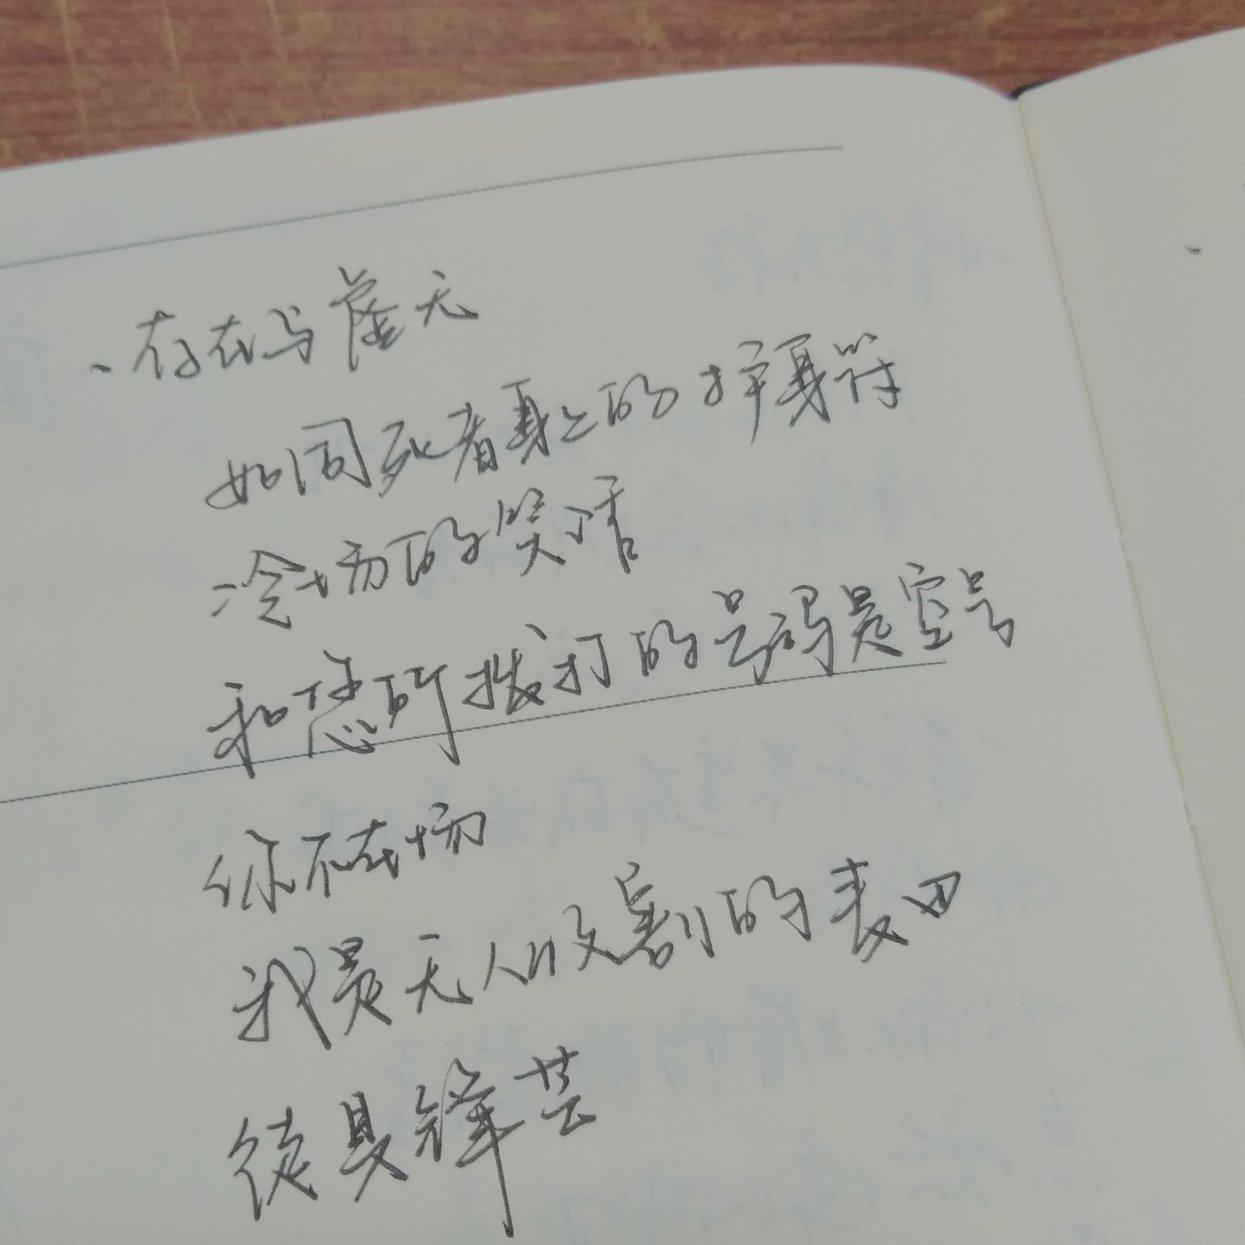 、存在与虚无
如同死者身上的护身符
冷场的笑话
和您所拨打的号码是空号
你不在场
我是无人收割的麦田
徒具锋芒